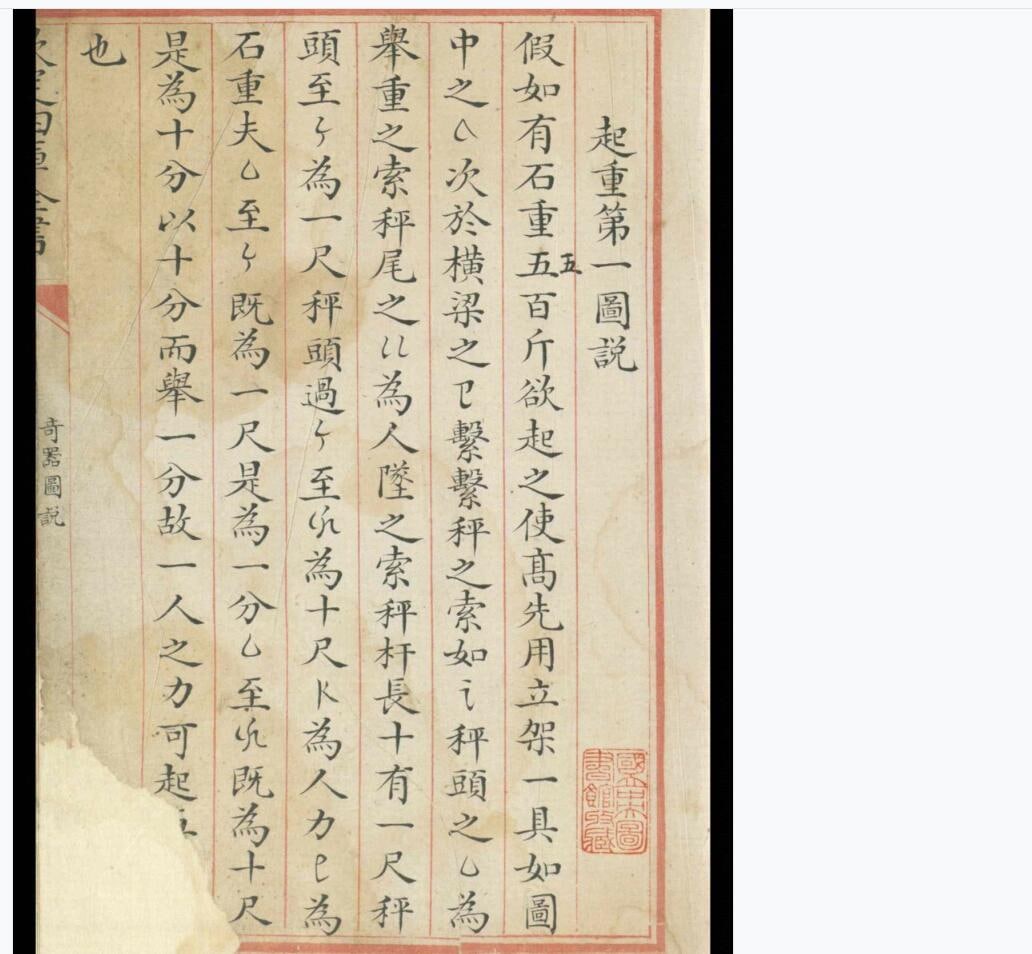 起重第一圖説
假如有石重五百斤欲起之使髙先用立架一具如圖
五
中之次於橫梁之繫繫秤之索如讠秤頭之乚為
舉重之索秤尾之為人墜之索秤杆長十有一尺秤
頭至為一尺秤頭過至為十尺為人力為
石重夫至既為一尺是為一分至既為十尺
是為十分以十分而舉一分故一人之力可起
也
奇器圖説
國立中央圖書館收藏